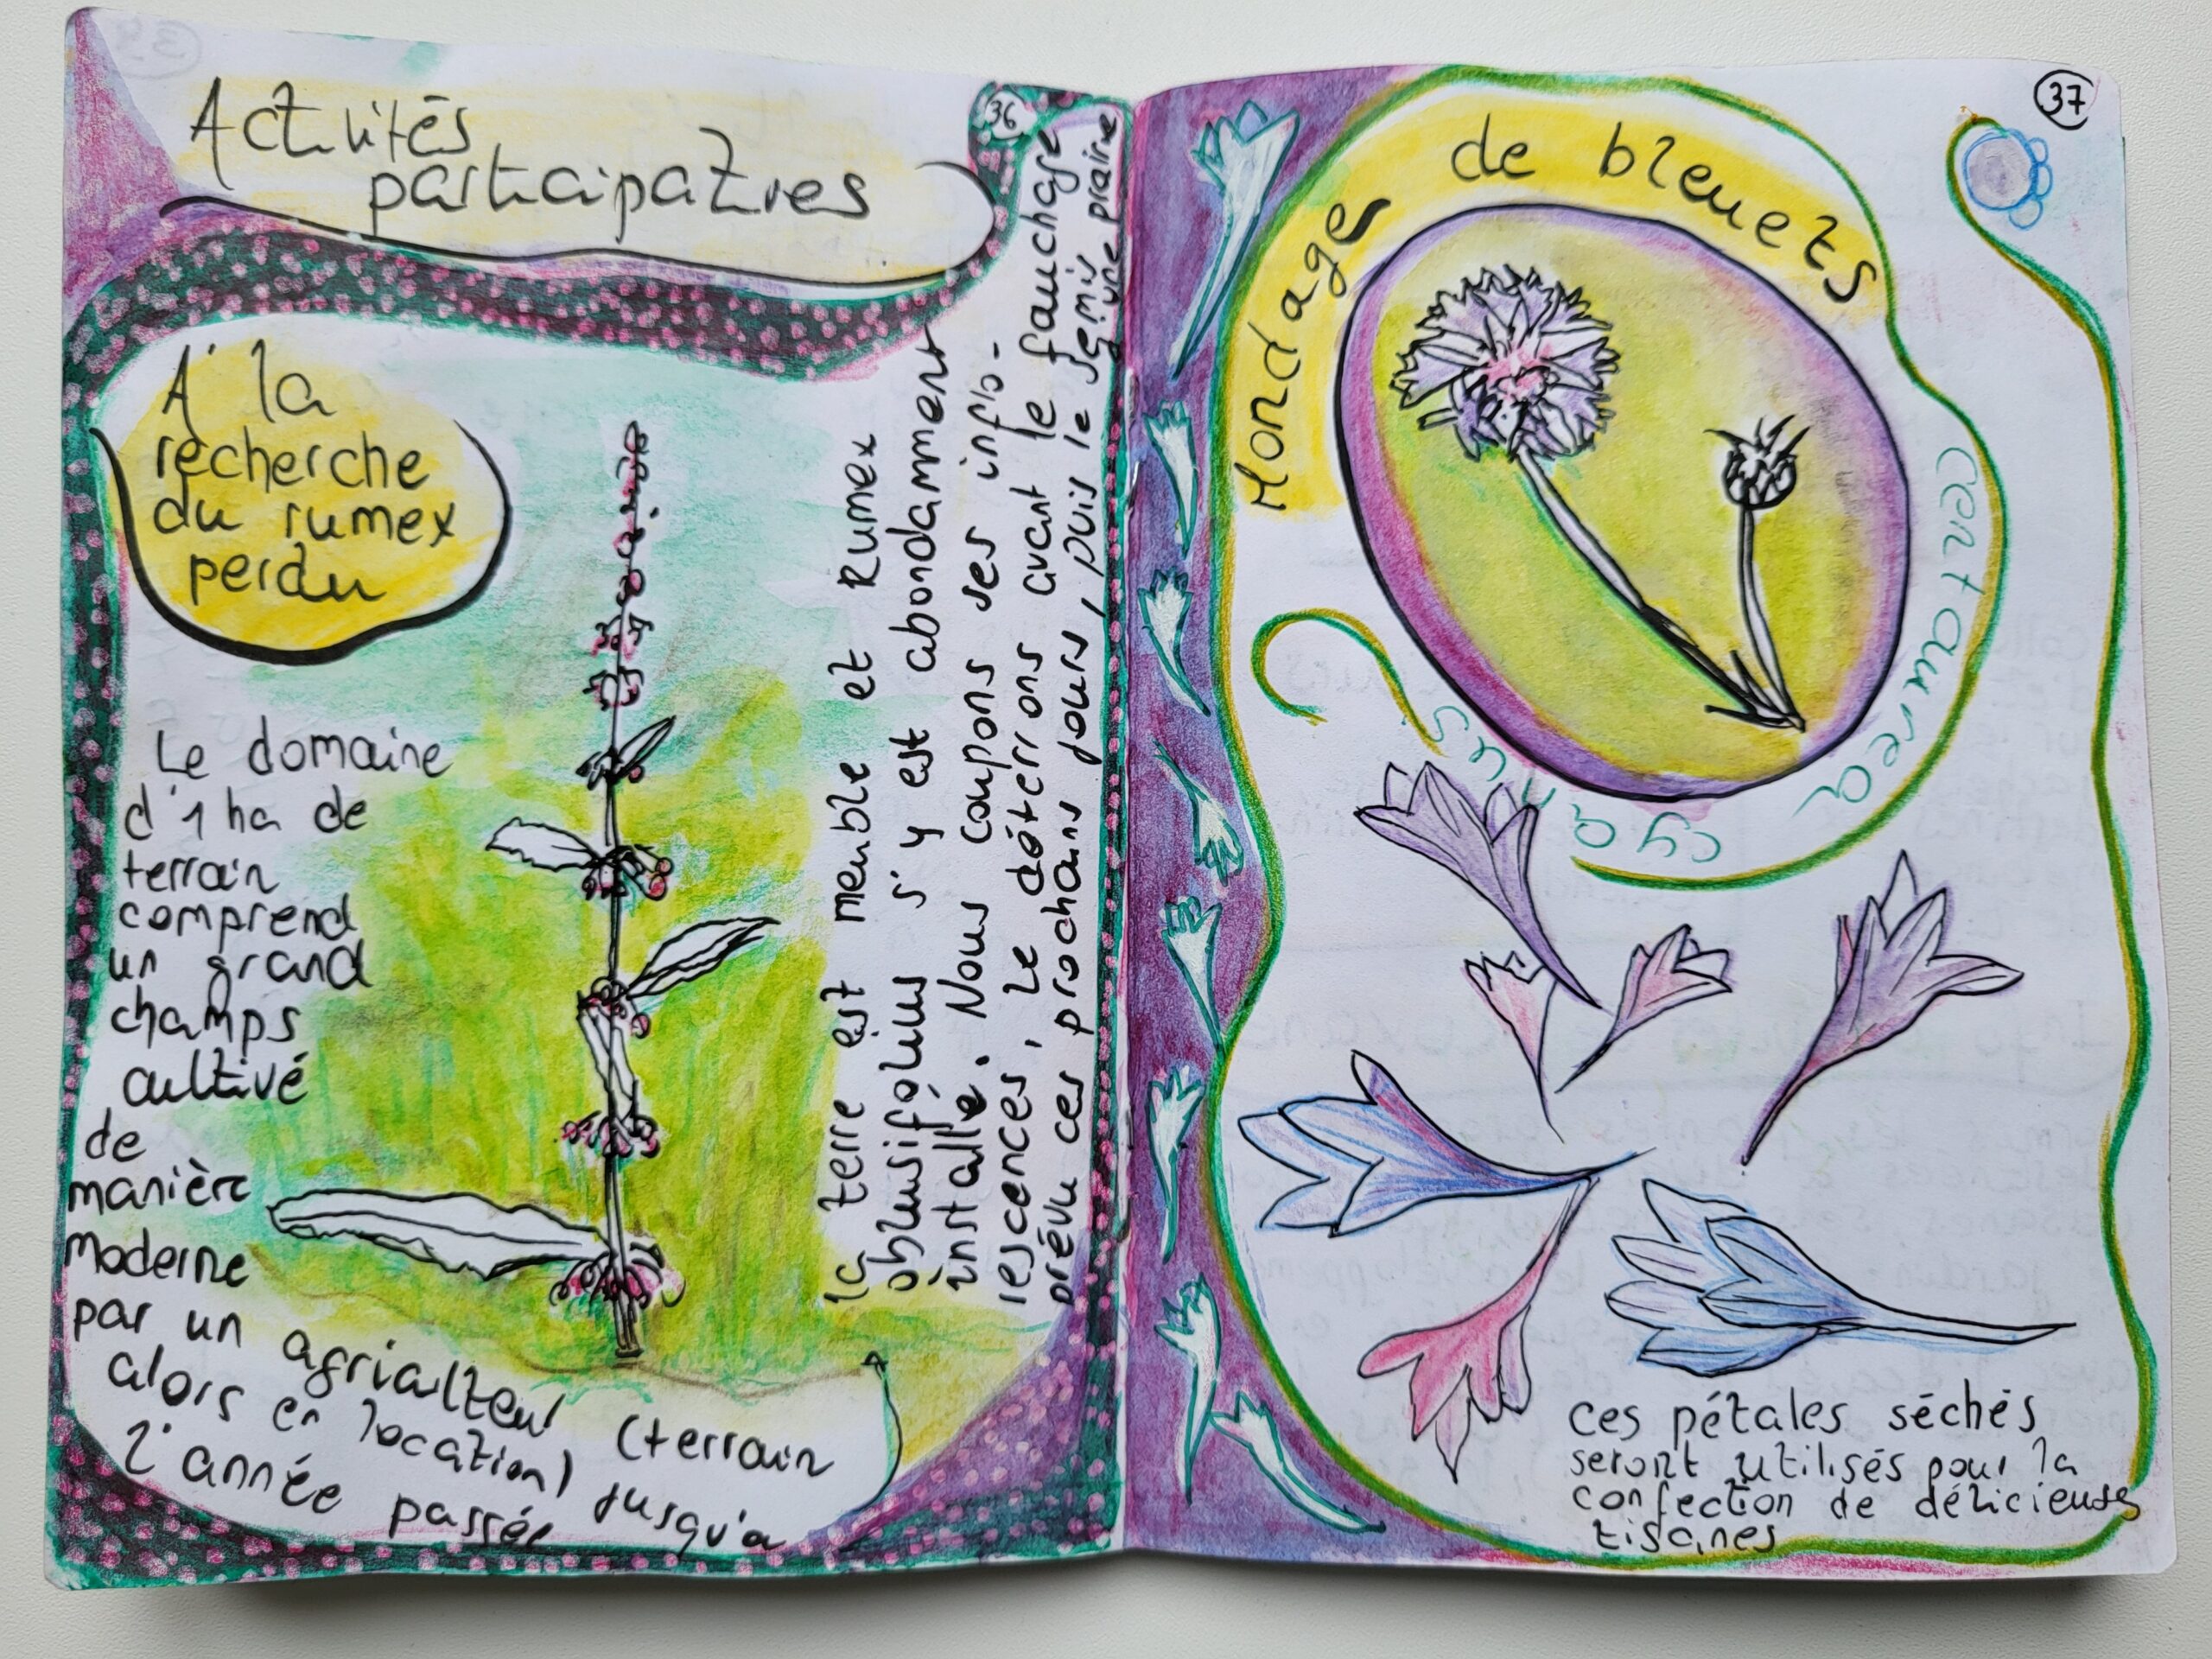 36
Activités
participatives
A' la
recherche
du rumex
perdu
Le domaine
d'1 ha de
terrain
comprend
un grand
champs
cultivé
de
manière
moderne
par un agriculteur (terrain
alors en location) jusqu'a
l'année passée
la terre est meuble et Rumex
obtusifolius s'y est abondamment
installé. Nous coupons ses inflo-
rescences, le déterrons avant le fauchage
prévu ces prochains jours, puis le semis
d'une prairie
37
Mondage de bleuets
centaurea cyanus
ces pétales séchés
seront utilisés pour la
confection de délicieuses
tisanes